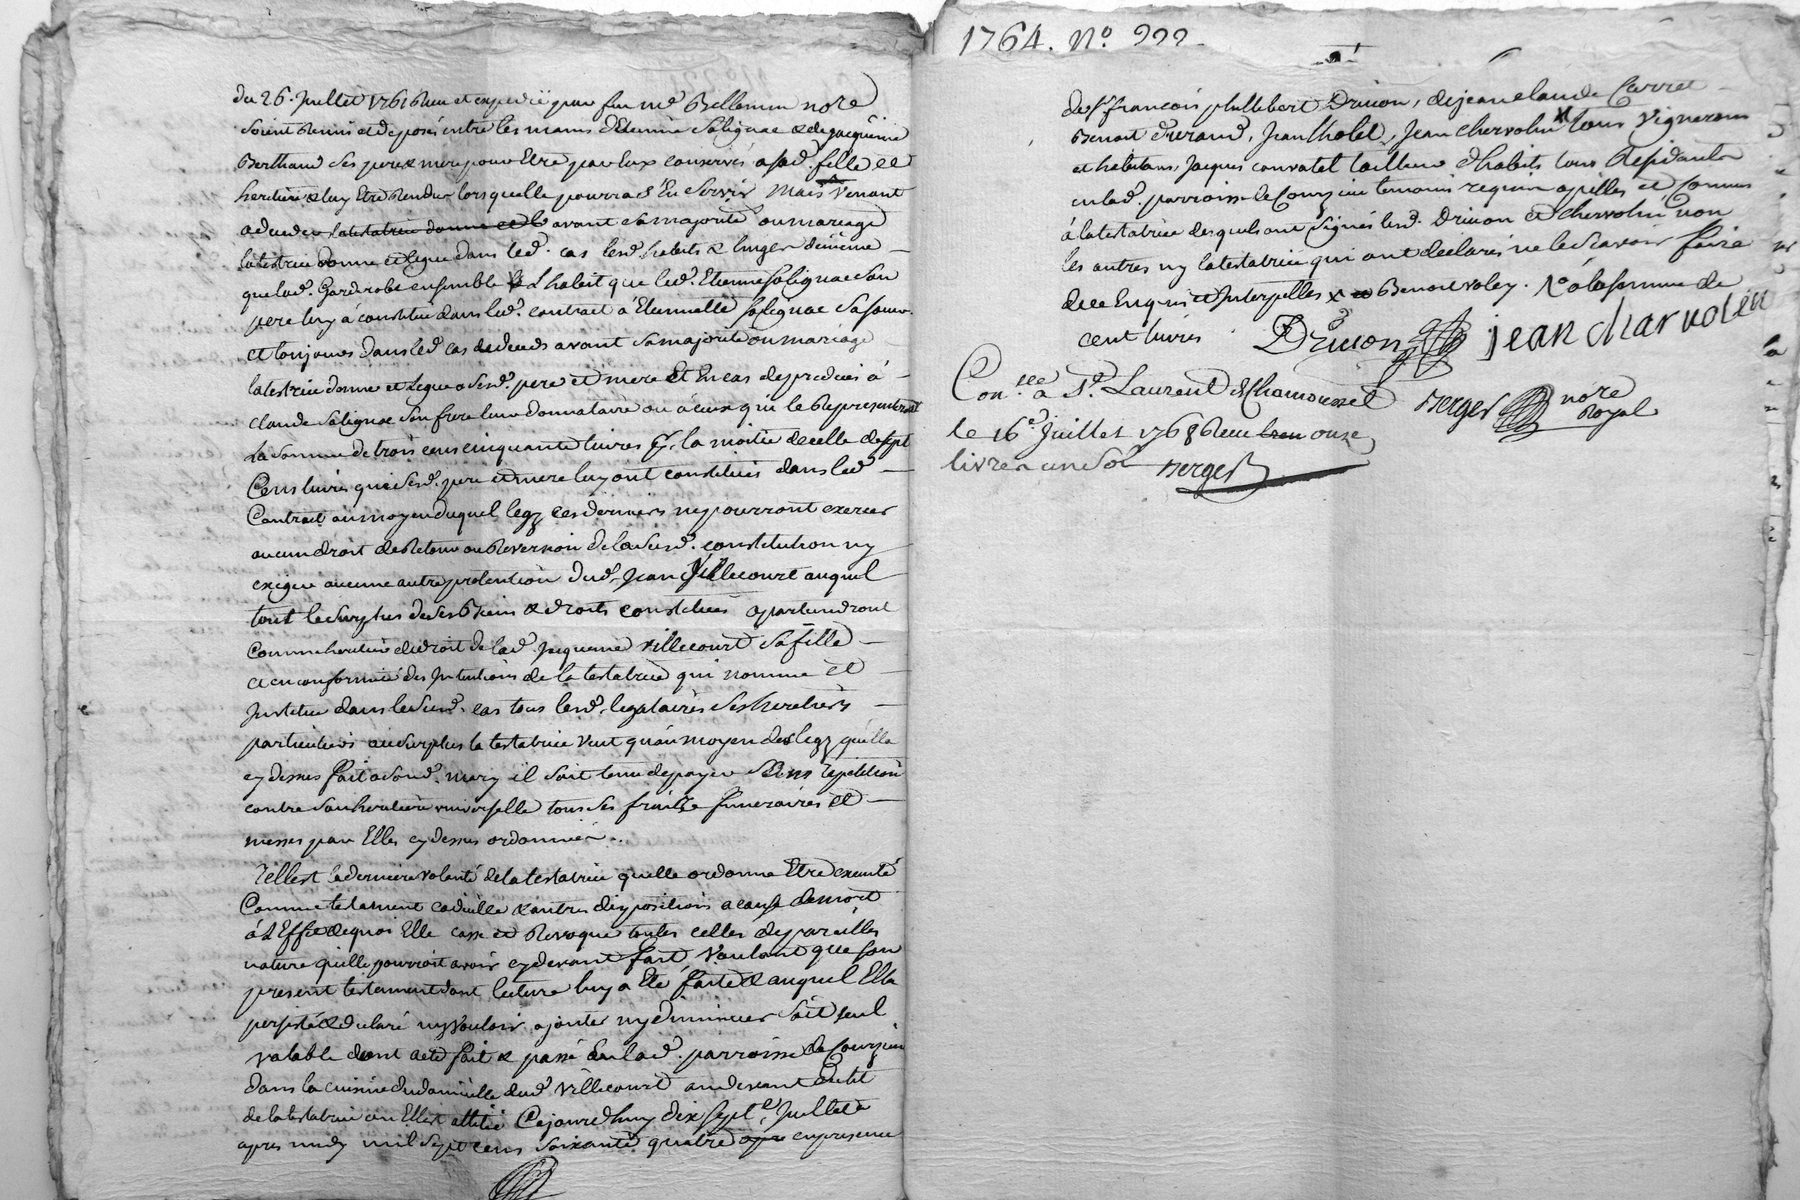 du 26. Juillet 1761 Reçu et expedié par feu me. Bellemin nore
soient Remis et deposés entre les mains d'Etienne Salignac & de jacquemie
Berthaud ses pere & mere pour Etre par Eux conservés a sad. fille et
heritiere & luy Etre Rendus lorsquelle pourra s'En Servir Mais Venant
a deceder la testatrice donne et le avant sa majorité ou mariage
latestrice donne et legue dans led. cas lesd. habits & linges dem̃eme
que lad. Garderobe ensemble L'habit que led. Etienne Salignac son
pere luy á constitué dans led. contrat á Etiennette Salignac sa soeur.
et toujours dans led cas de deceds avant sa majorité ou mariage
latestrice donne et Legue a sesd. pere et mere Et En cas de predeces á
claude Salignac son frere leur donnataire ou á ceux qui le Representeront
La somme de trois cens cinquante livres fs. la moitié de celle de sept
Cens livres que sesd. pere et mere luy ont constitués dans led
Contrat au moyen duquel legz ces derniers ny pourront exercer
aucun droit de Retour ou Reversion de la susd. constitution ny
exiger aucune autre pretention dud. Jean Villecourt auquel
tout le surplus de ses Biens & droits constitués apartiendront
Comme heritier de droit de lad. Jacqueme Villecourt sa fille
et en conformité des Intentions de la testatrice qui nomme et
Institue dans le susd. cas tous lesd. legataires ses heretiers
particuliers au surplus la testatrice Veut qu'au moyen des legz quella
cy dessus fait a sond. mary il soit tenu de payer sans repetition
contre son heritiere universelle tous ses fraits funeraires et
messes par Elle cy dessus ordonnées.
Telle est la derniere volonté de la testatrice quelle ordonne Etre executé
Comme testament codicille & autres dispositions a cause de mort
á L'Effet de quoi Elle casse et Revoque toutes celles de pareilles
nature qu'elle pourroit avoir cy devant fait Voulant que son
present testament dont lecture luy a Eté faite & auquel Elle
persisté & declaré ny Vouloir ajouter ny diminuer soit seul
valable dont acte fait & passé En lad. parroisse de Courzieu
dans la cuisine du domicille dud Villecourt au devant du lit
de la testatrice ou Elle est allitée Cejourd'huy dix Sept.e Juillet
apres midy mil Sept cens soixante quatre en presence
1764. No. 222.
de Sr francois phillebert Drivon, de jean claude Carret
Benoit Durand, Jean tholet, Jean chervolin tous Vignerons
et habitans, Jacques convatel tailleur d'habits tous Residants
en lad. parroisse de Courzieu temoins requis apellés et connus
á la testatrice desquels ont signés lesd. Drivon et chervolin non
les autres ny la testatrice qui ont declarés ne le sçavoir faire
de ce Enquis et Interpellés x Benoit voley. No á la somme de
cent livres
Drivon jean charvolin
Con.lée a St. Laurent de Chamousset
Berger nore Royal
le 16e Juillet 1768 Reçu onze
livres un sol Berger